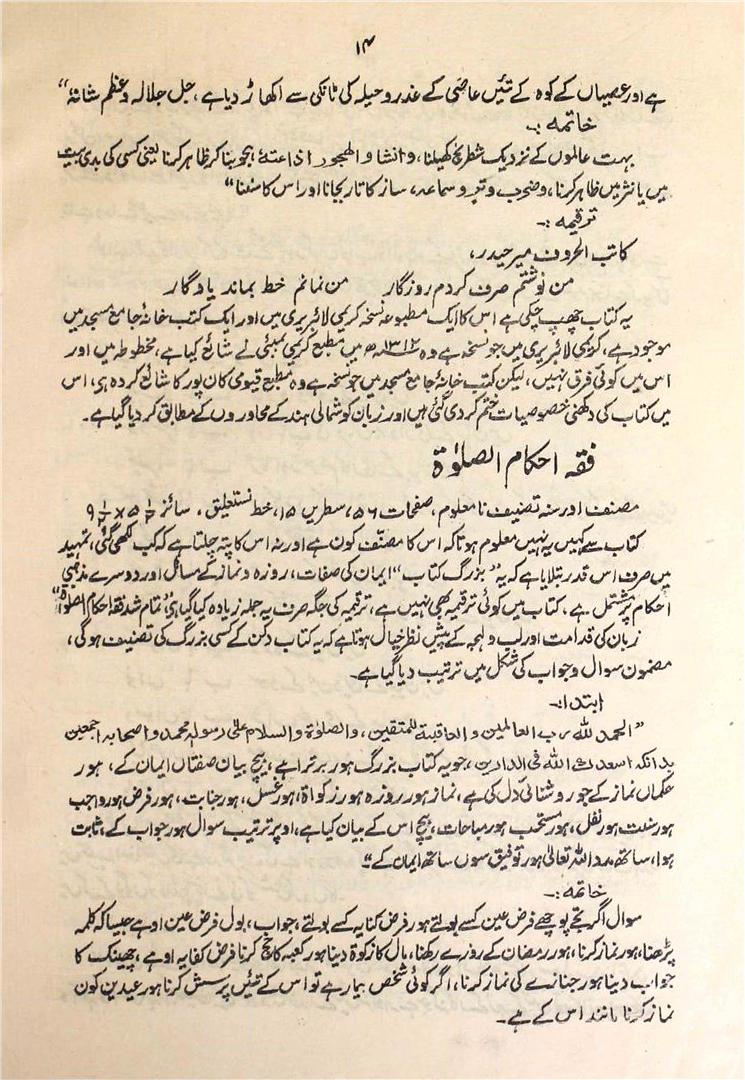 ۱۴
ہے اور عصیاں کے کوہ کے تئیں عاصی کے عذر و حیلہ کی ٹانکی سے اکھاڑ دیا ہے، جل جلالہ و عظم شانہٗ“
خاتمہ :۔
بہت عالموں کے نزدیک شطرنج کھیلنا، و انشا و الھجور اذاعتہٗ ہجو بنا کر ظاہر کرنا یعنی کسی کی بدی بیت
میں یا نثر میں ظاہر کرنا، وضرب وتر و سماعہ، ساز کا تار بجانا اور اس کا سننا“
ترقیمہ :۔
کاتب الحروف میر حیدر،
من نوشتم صرف کردم روزگار من نمانم خط بماند یادگار
یہ کتاب چھپ چکی ہے اس کا ایک مطبوعہ نسخہ کریمی لائبریری میں اور ایک کتب خانۂ جامع مسجد میں
موجود ہے، کریمی لائبریری میں جو نسخہ ہے وہ ۱۳۱۲ھ میں مطبع کریمی بمبئی نے شائع کیا ہے، مخطوطہ میں اور
اس میں کوئی فرق نہیں، لیکن کتب خانۂ جامع مسجد میں جو نسخہ ہے وہ مطبع قیومی کان پور کا شائع کردہ ہی، اس
میں کتاب کی دکھنی خصوصیات ختم کر دی گئی ہیں اور زبان کو شمالی ہند کے محاوروں کے مطابق کر دیا گیا ہے۔
فقہ احکام الصلوٰۃ
مصنف اور سنہ تصنیف نامعلوم، صفحات ۵۶، سطریں ۱۵، خط نستعلیق، سائز ½۵ × ½۹
کتاب سے کہیں یہ نہیں معلوم ہوتا کہ اس کا مصنف کون ہے اور نہ اس کا پتہ چلتا ہے کہ کب لکھی گئی، تمہید
میں صرف اس قدر بتلایا ہے کہ یہ ”بزرگ کتاب“ ایمان کی صفات، روزہ و نماز کے مسائل اور دوسرے مذہبی
احکام پر مشتمل ہے، کتاب میں کوئی ترقیمہ بھی نہیں ہے، ترقیمہ کی جگہ صرف یہ جملہ زیادہ کیا گیا ہی ”تمام شد فقہ احکام الصلوٰۃ“
زبان کی قدامت اور لب و لہجہ کے پیش نظر خیال ہوتا ہے کہ یہ کتاب دکن کے کسی بزرگ کی تصنیف ہوگی،
مضمون سوال و جواب کی شکل میں ترتیب دیا گیا ہے۔
ابتدا :۔
”الحمد للہ رب العالمین و العاقبۃ للمتقین، والصلوٰۃ والسلام علی رسولہ محمد و اصحابہ اجمعین
بدانکہ اسعدک اللہ فی الدارین، جو یہ کتاب بزرگ ہور برتر اہے، بیچ بیان صفتاں ایمان کے، ہور
حکماں نماز کے جو روشنائی دل کی ہے، نماز ہور روزہ ہور زکوٰۃ، ہور غسل، ہور جنابت، ہور فرض ہور واجب
ہور سنت ہور نفل، ہور مستحب ہور مباحات، بیچ اس کے بیان کیا ہے، اوپر ترتیب سوال ہور جواب کے، ثابت
ہوا، ساتھ مدد اللہ تعالیٰ ہور توفیق سوں ساتھ ایمان کے“
خاتمہ :۔
سوال اگر تجے پوچھے فرض عین کسے بولتے ہور فرض کفایہ کسے بولتے، جواب، بول فرض عین او ہے جیسا کہ کلمہ
پڑھنا، ہور نماز کرنا، ہور رمضان کے روزے رکھنا، مال کا زکوٰۃ دینا ہور کعبہ کا حج کرنا فرض کفایہ او ہے، چھینک کا
جواب دینا ہور جنازے کی نماز کرنا، اگر کوئی شخص بیمار ہے تو اس کے تئیں پرسش کرنا ہور عیدین کون
نماز کرنا مانند اس کے ہے۔